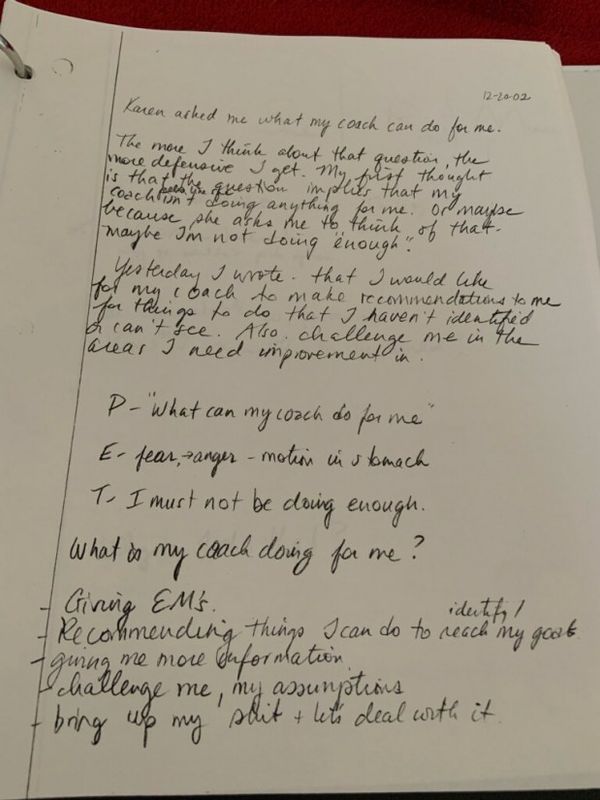 12-20-02
Karen asked me what my coach can do for me.
The more I think about that question, the
more defensive I get. My first thought
is that the question implies that my
coach feels like she isn't doing anything for me. Or maybe
because she asks me to think of that -
maybe I'm not doing "enough".
Yesterday I wrote that I would like
for my coach to make recommendations to me
for things to do that I haven't identified
or can't see. Also challenge me in the
areas I need improvement in.
P - "What can my coach do for me"
E - fear, → anger - motion in stomach
T - I must not be doing enough.
What is my coach doing for me?
- Giving EM's.
- Recommending things I can do to identify / reach my goals
- giving me more information
- challenge me, my assumptions
- bring up my shit + let's deal with it.